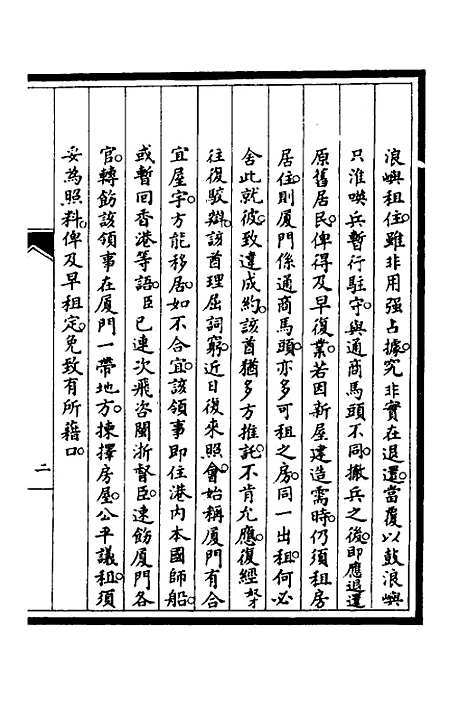 浪嶼租住。雖非用强占據。究非實在退還。當覆以鼓浪嶼
只准㗸兵暫行駐守。與通商馬頭不同。撤兵之後。即應退還
原舊居民。俾得及早復業。若因新屋建造需時。仍須租房
居住。則厦門係通商馬頭。亦多可租之房。同一出租。何必
舍此就彼。致違成約。該酋猶多方推託。不肯允應。復經奴才
往復駁辯。該酋理屈詞窮。近日復來照會。始稱厦門有合
宜屋宇。方能移居。如不合宜。該領事即住港内本國師船。
或暫回香港等語。臣已連次飛咨閩浙督臣。速飭厦門各
官。轉飭該領事在厦門一帶地方。揀擇房屋。公平議租。須
妥為照料。俾及早租定。免致有所藉口。
二